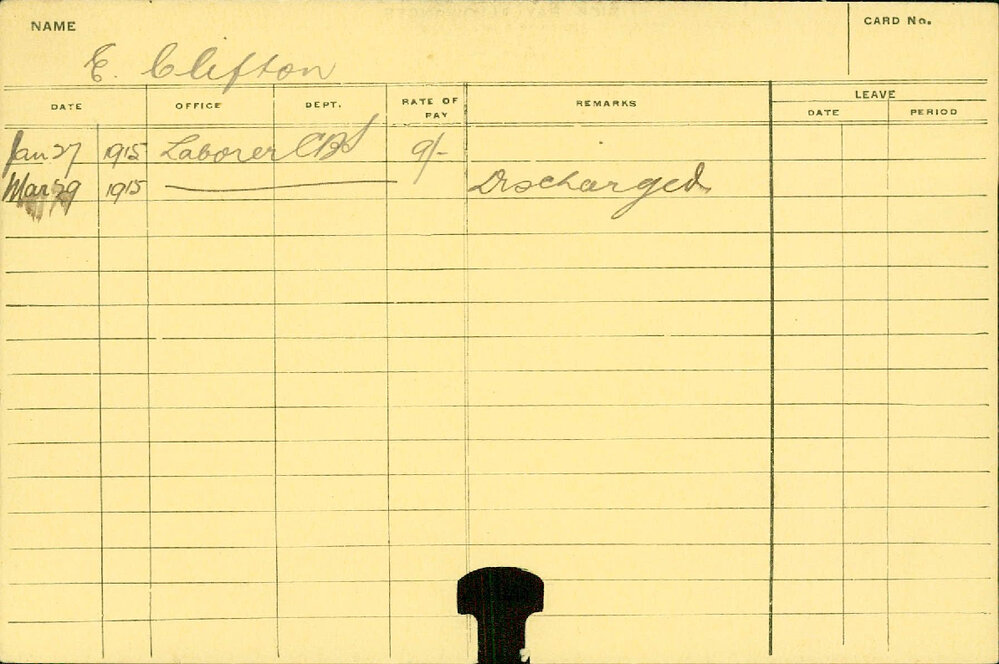 NAME
CARD No.
E. Clifton
DATE OFFICE DEPT. RATE OF PAY REMARKS LEAVE
DATE PERIOD
Jan 27 1915 Laborer CBS 9/-
Mar 29 1915 Discharged